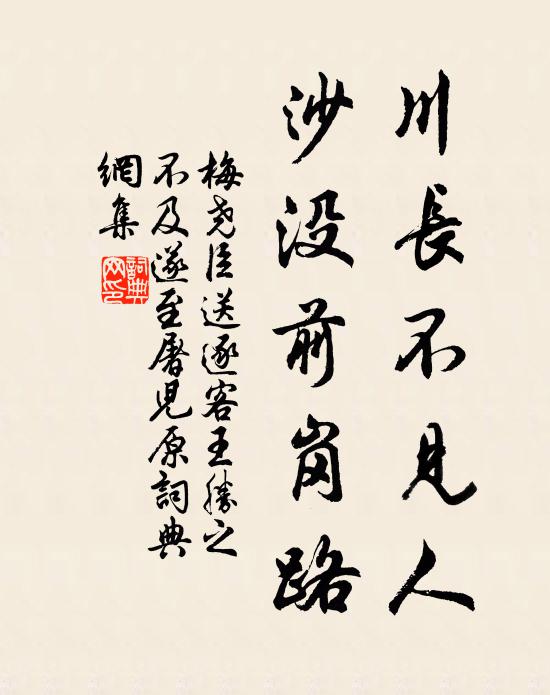 川長不見人
沙没前崗路
梅堯臣送逐客王勝之
不及遂至屠児原詞典
網集
詞典
网印